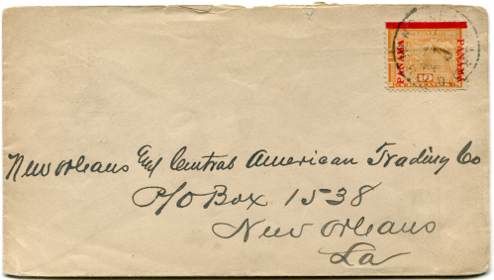 PANAMA PANAMA
10
New Orleans & Central American Trading Co
P/O Box 1538
New Orleans
La